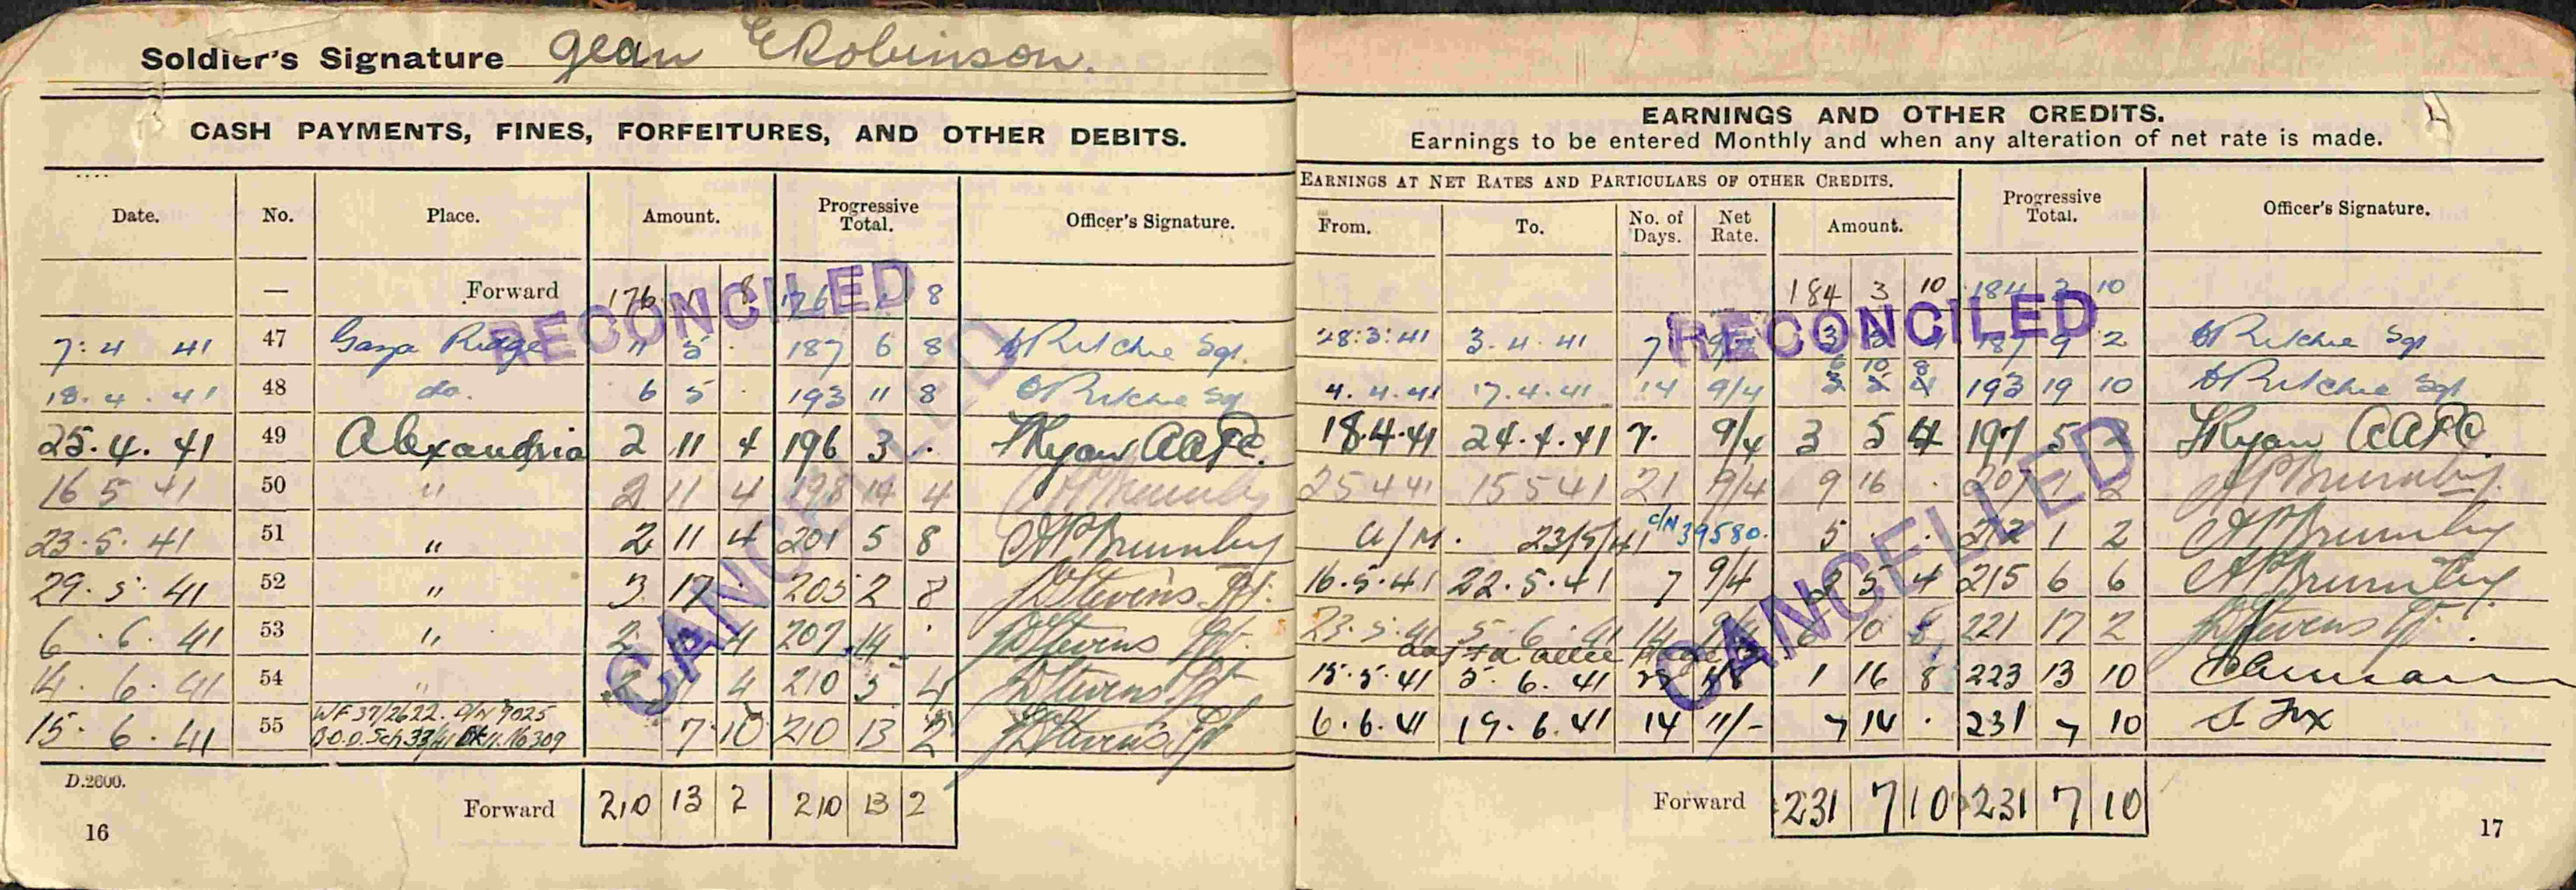 Soldier's Signature Jean E Robinson.
CASH PAYMENTS, FINES, FORFEITURES, AND OTHER DEBITS.
Date. No. Place. Amount. Progressive Total. Officer's Signature.
— Forward 176 1 8 176 1 8
RECONCILED
7:4 41 47 Gaza Ridge 11 5 . 187 6 8 Ritchie Sgt.
18.4.41 48 do. 6 5 . 193 11 8 Ritchie Sgt
25.4.41 49 Alexandria 2 11 4 196 3 . Ryan AAPC.
16 5 41 50 " 2 11 4 198 14 4 Brumby
23.5.41 51 " 2 11 4 201 5 8 Brumby
29.5.41 52 " 3 17 . 205 2 8 Stevens
6.6.41 53 " 2 4 207 14 . Stevens
14.6.41 54 " 4 210 5 4 Stevens
15.6.41 55 WF 37/2622. D/N 9025 7 10 210 13 2 Stevens
B.O.D. Sch 33/41 No 309
CANCELLED
D.2600.
Forward 210 13 2 210 13 2
16
EARNINGS AND OTHER CREDITS.
Earnings to be entered Monthly and when any alteration of net rate is made.
EARNINGS AT NET RATES AND PARTICULARS OF OTHER CREDITS. Progressive Total. Officer's Signature.
From. To. No. of Days. Net Rate. Amount.
184 3 10 184 3 10
RECONCILED
28:3:41 3.4.41 7 3 187 9 2 Ritchie Sgt
6 10 8
4.4.41 17.4.41 14 9/4 193 19 10 Ritchie Sgt
18.4.41 24.4.41 7. 9/4 3 5 4 197 5 2 Ryan AAPC
25 4 41 15 5 41 21 9/4 9 16 . 207 1 2 Brumby.
A/M. 23/5/41 C/N 39580. 5 . . 212 1 2 Brumby
16.5.41 22.5.41 7 9/4 3 5 4 215 6 6 Brumby
23.5.41 5.6.41 14 10 8 221 17 2 Stevens
15.5.41 5.6.41 1 16 8 223 13 10
6.6.41 19.6.41 14 11/- 7 14 . 231 7 10 Fox
CANCELLED
Forward 231 7 10 231 7 10
17